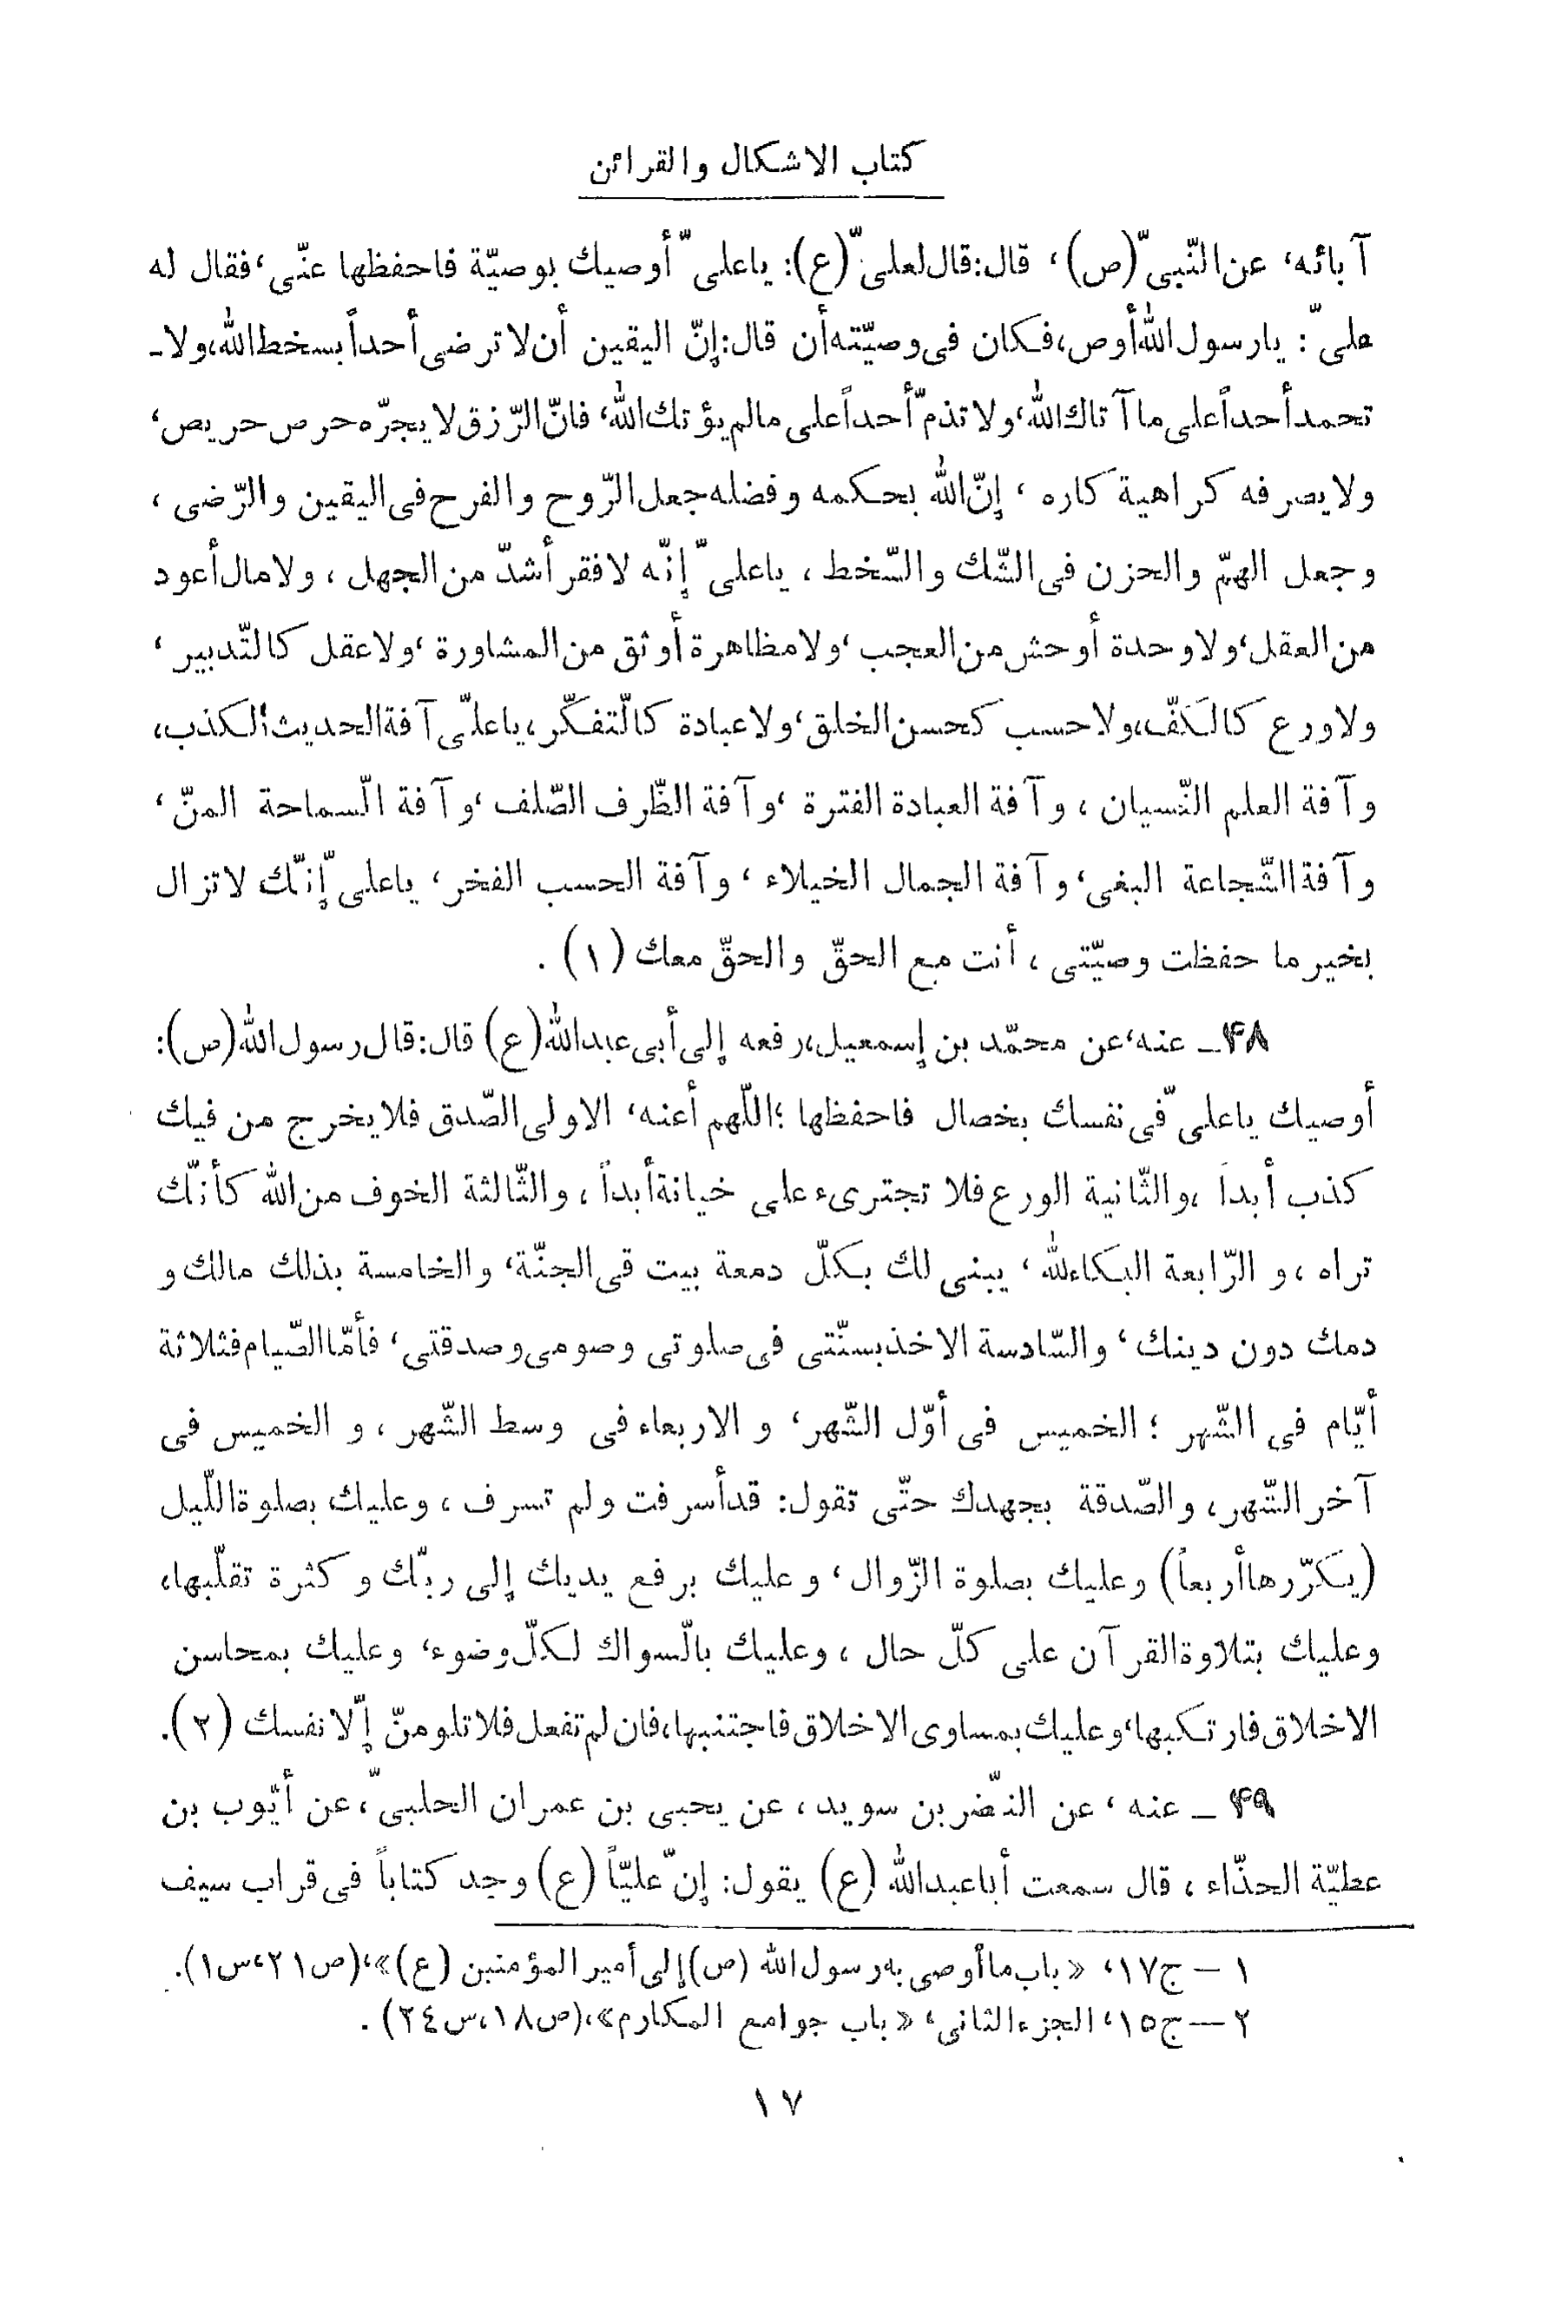 كتاب الاشكال والقرائن
آبائه، عن النّبىّ (ص)، قال: قال لعلىّ (ع): ياعلىّ أوصيك بوصيّة فاحفظها عنّى، فقال له
علىّ: يارسول الله أوص، فكان فى وصيّته أن قال: إنّ اليقين أن لا ترضى أحداً بسخط الله، ولا-
تحمد أحداً على ما آتاك الله، ولا تذمّ أحداً على مالم يؤتك الله، فانّ الرّزق لا يجرّه حرص حريص،
ولا يصرفه كراهية كاره، إنّ الله بحكمه وفضله جعل الرّوح والفرح فى اليقين والرّضى،
وجعل الهمّ والحزن فى الشّك والسّخط، ياعلىّ إنّه لا فقر أشدّ من الجهل، ولا مال أعود
من العقل، ولا وحدة أوحش من العجب، ولا مظاهرة أوثق من المشاورة، ولا عقل كالتّدبير،
ولا ورع كالكفّ، ولا حسب كحسن الخلق، ولا عبادة كالتّفكّر، ياعلىّ آفة الحديث الكذب،
وآفة العلم النّسيان، وآفة العبادة الفترة، وآفة الظّرف الصّلف، وآفة السّماحة المنّ،
وآفة الشّجاعة البغى، وآفة الجمال الخيلاء، وآفة الحسب الفخر، ياعلىّ إنّك لا تزال
بخير ما حفظت وصيّتى، أنت مع الحقّ والحقّ معك (١).
۴۸ـ عنه، عن محمّد بن إسمعيل، رفعه إلى أبى عبدالله (ع) قال: قال رسول الله (ص):
أوصيك ياعلىّ فى نفسك بخصال فاحفظها؛ اللّهم أعنه، الاولى الصّدق فلا يخرج من فيك
كذب أبداً، والثّانية الورع فلا تجترىء على خيانة أبداً، والثّالثة الخوف من الله كأنّك
تراه، و الرّابعة البكاء لله، يبنى لك بكلّ دمعة بيت فى الجنّة، والخامسة بذلك مالك و
دمك دون دينك، والسّادسة الاخذ بسنّتى فى صلوتى وصومى وصدقتى، فأمّا الصّيام فثلاثة
أيّام فى الشّهر؛ الخميس فى أوّل الشّهر، و الاربعاء فى وسط الشّهر، و الخميس فى
آخر الشّهر، والصّدقة بجهدك حتّى تقول: قد أسرفت ولم تسرف، وعليك بصلوة اللّيل
(يكرّرها أربعاً) وعليك بصلوة الزّوال، وعليك برفع يديك إلى ربّك وكثرة تقلّبها،
وعليك بتلاوة القرآن على كلّ حال، وعليك بالسّواك لكلّ وضوء، وعليك بمحاسن
الاخلاق فارتكبها، وعليك بمساوى الاخلاق فاجتنبها، فان لم تفعل فلا تلومنّ إلّا نفسك (٢).
۴۹ ـ عنه، عن النّضر بن سويد، عن يحيى بن عمران الحلبىّ، عن أيّوب بن
عطيّة الحذّاء، قال سمعت أبا عبدالله (ع) يقول: إنّ عليّاً (ع) وجد كتاباً فى قراب سيف
١ - ج١٧، «باب ما أوصى به رسول الله (ص) إلى أمير المؤمنين (ع)»، (ص٢١، س١).
٢ - ج١٥، الجزء الثانى، «باب جوامع المكارم»، (ص١٨، س٢٤).
١٧